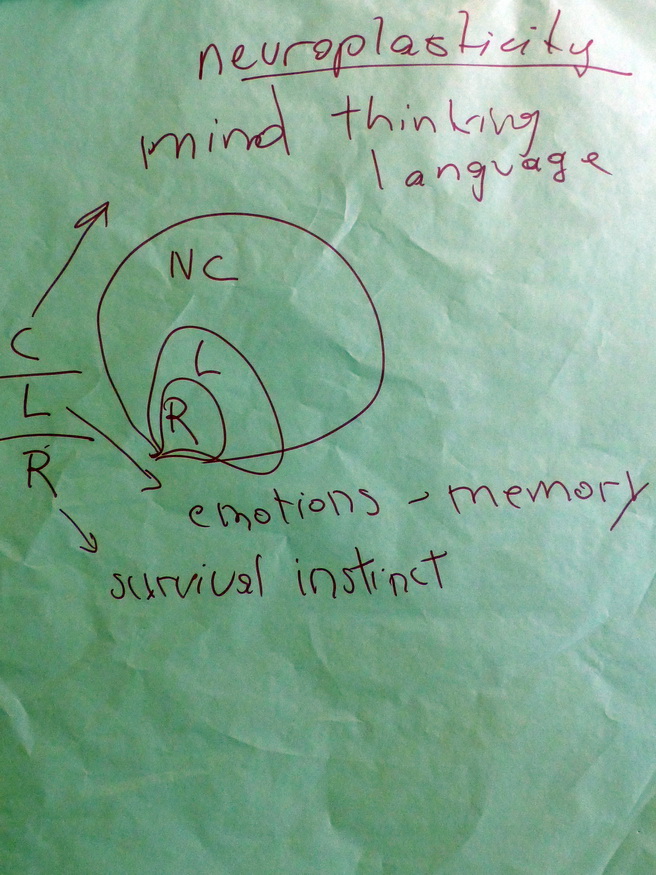 neuroplasticity
mind thinking
language
NC
C
L
L
R
R
emotions - memory
survival instinct